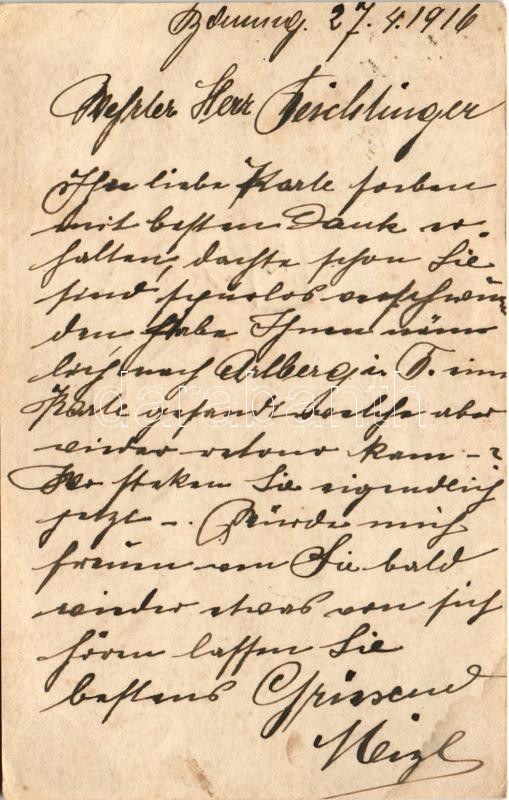 27.4.1916
Wehrter Herr Feichtinger
Ihre liebe Karte soeben
mit besten Dank er-
halten, dachte schon Sie
sind spurlos verschwun-
den Habe Ihnen näm
lich nach Arlberg in T. eine
Karte gesandt welche aber
wieder retour kam - ?
Wo steken Sie eigendlich
jetzt -. Würde mich
freuen wen Sie bald
wieder etwas von sich
hören lassen Sie
bestens Grüsend
darabanth